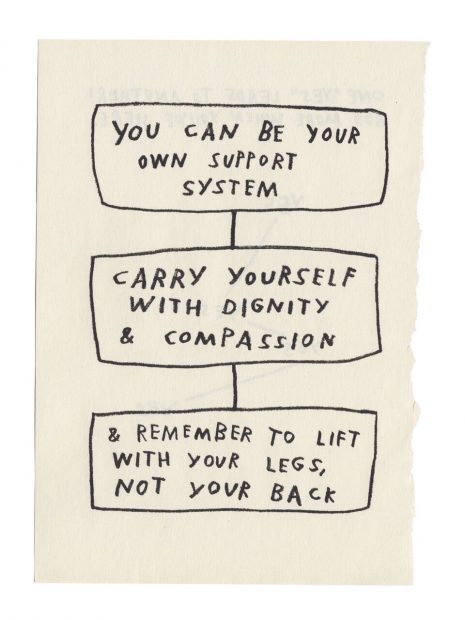 YOU CAN BE YOUR
OWN SUPPORT
SYSTEM
CARRY YOURSELF
WITH DIGNITY
& COMPASSION
& REMEMBER TO LIFT
WITH YOUR LEGS,
NOT YOUR BACK